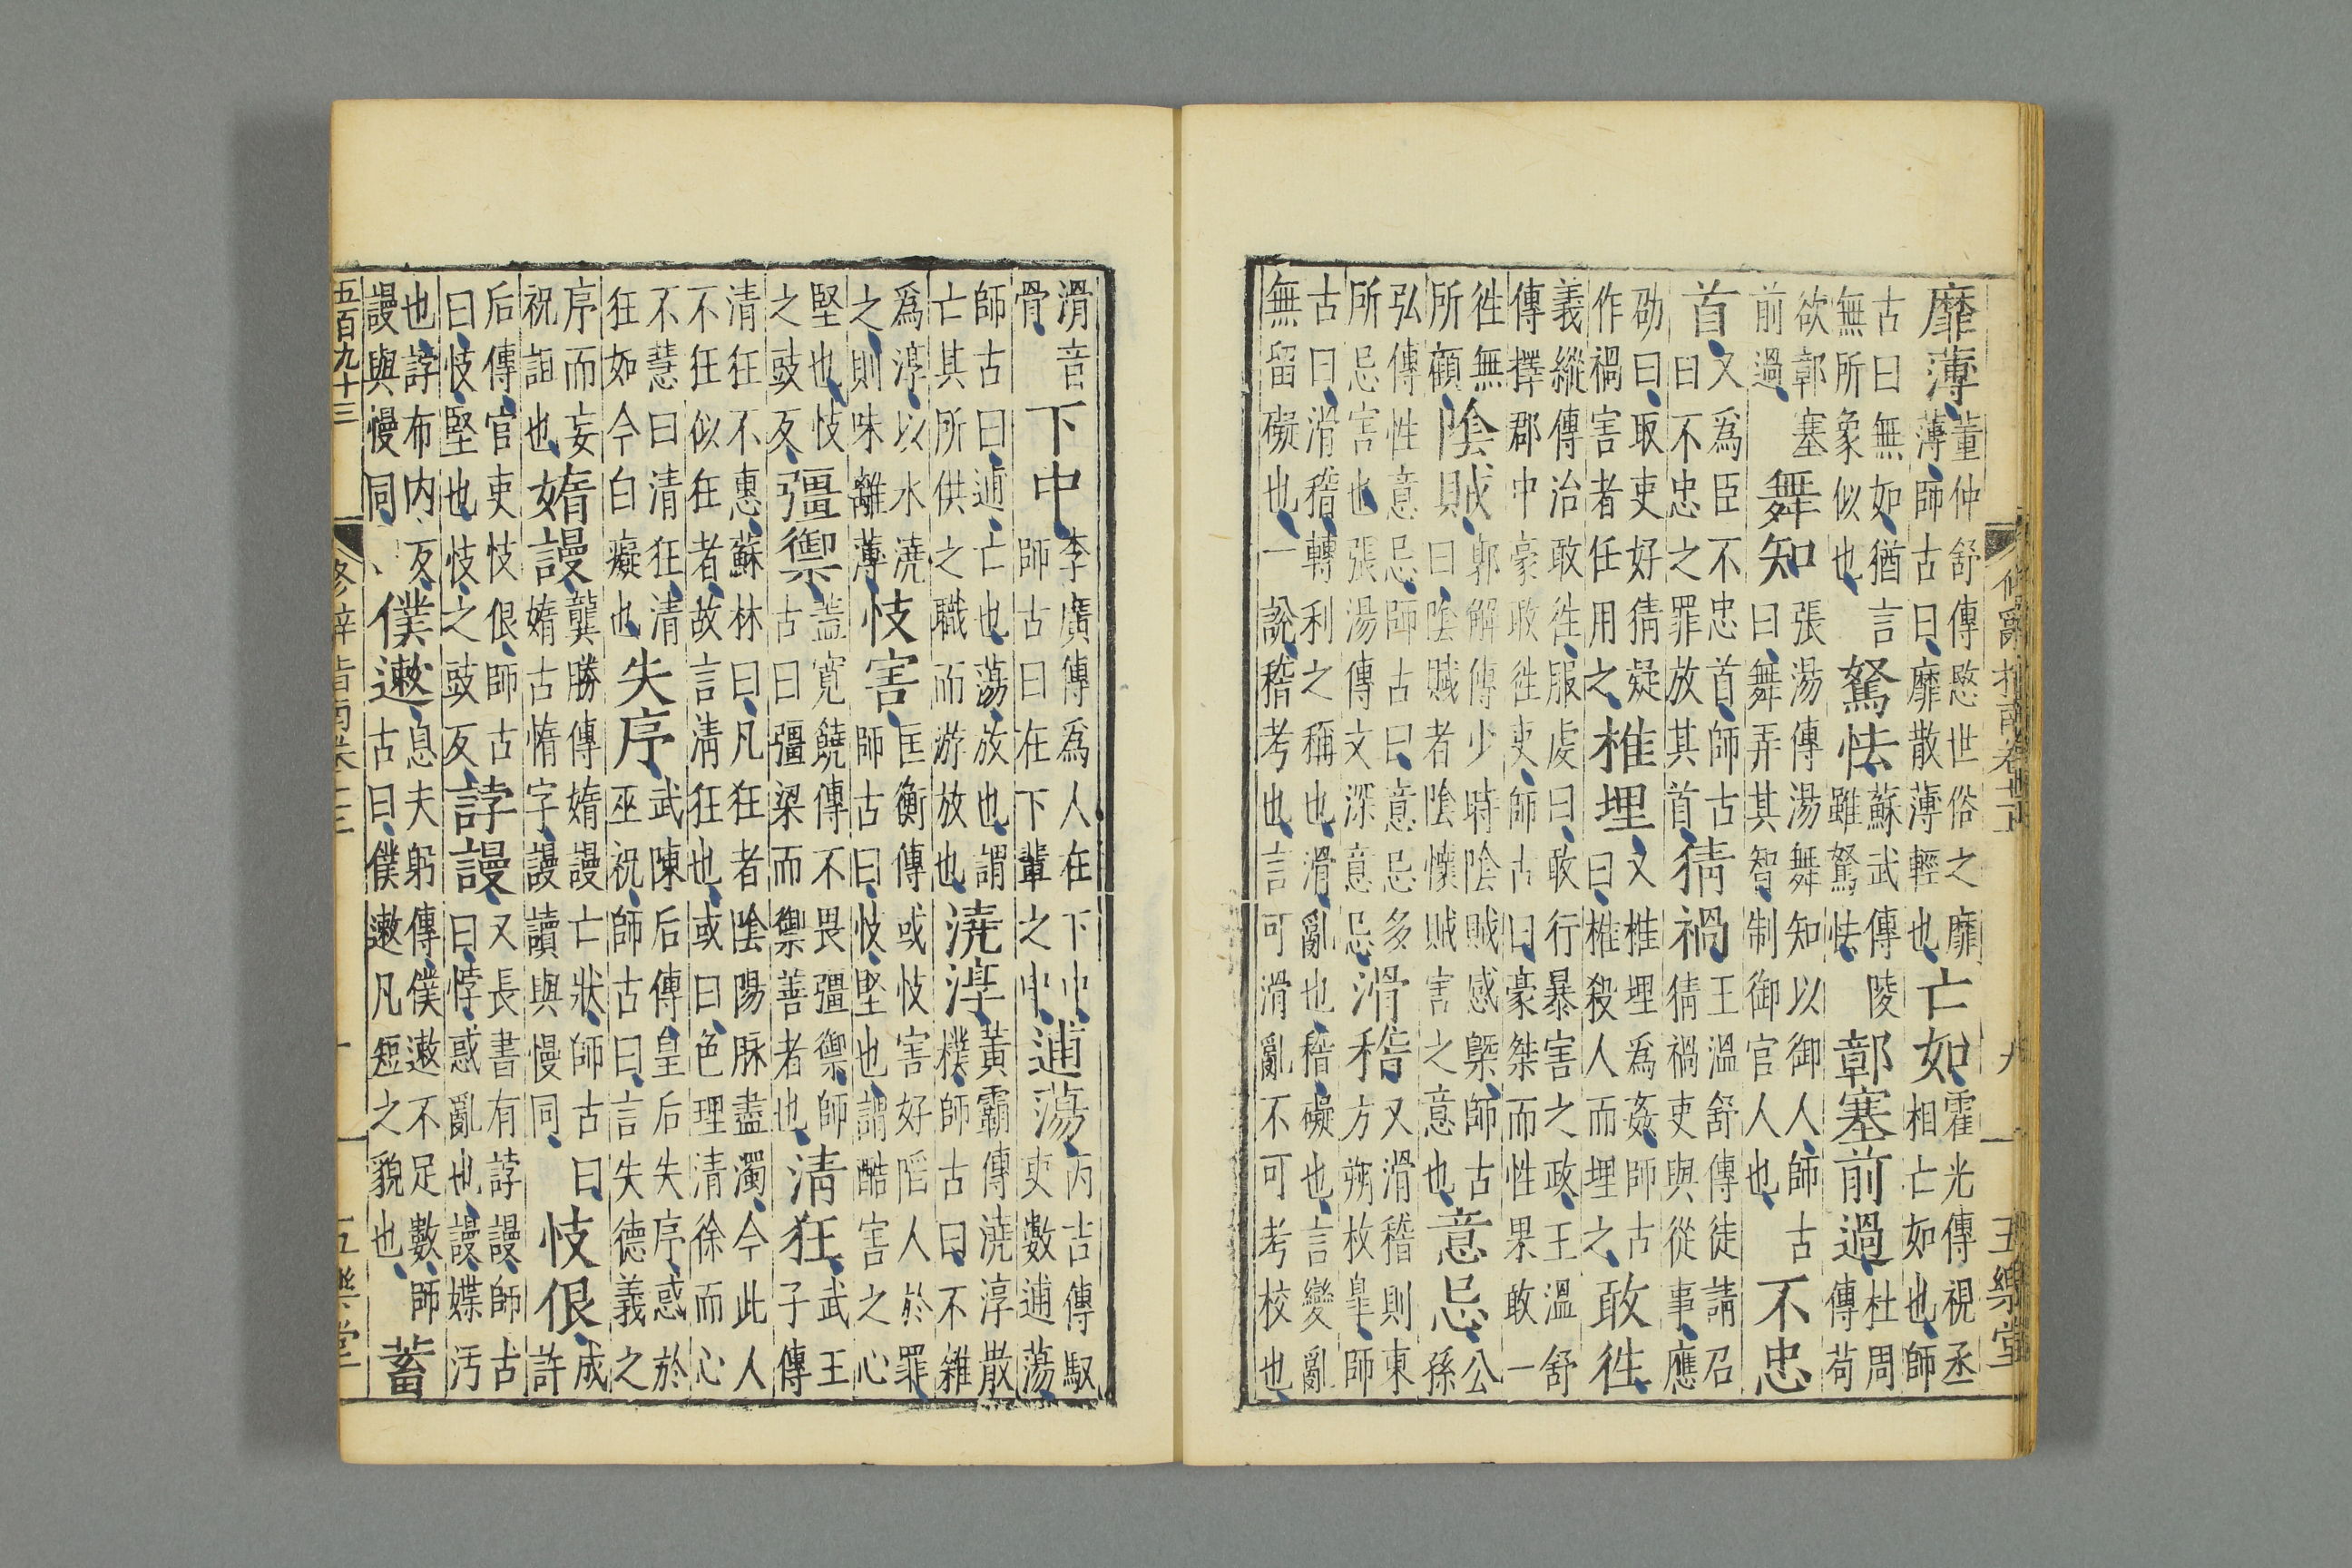 修辭指南卷 九 五樂堂
靡薄
董仲舒傳愍世俗之靡
薄師古曰靡散薄輕也
亡如
霍光傳視丞
相亡如也師
古曰無如猶言
無所象似也
駑怯
蘇武傳陵
雖駑怯
鄣塞前過
杜周
傳苟
欲鄣塞
前過
舞知
張湯傳湯舞知以御人師古
曰舞弄其智制御官人也
不忠
首
又爲臣不忠首師古
曰不忠之罪放其首
猜禍
王溫舒傳徒請召
猜禍吏與從事應
劭曰取吏好猜疑
作禍害者任用之
椎埋
又椎埋爲姦師古
曰椎殺人而埋之
敢徃
義縱傳治敢徃服虔曰敢行暴害之政王溫舒
傳擇郡中豪敢徃吏師古曰豪桀而性果敢一
徃無
所顧
陰賊
郭解傳少時陰賊感槩師古
曰陰賊者陰懷賊害之意也
意忌
公
孫
弘傳性意忌師古曰意忌多
所忌害也張湯傳文深意忌
滑稽
又滑稽則東
方朔枚皐師
古曰滑稽轉利之稱也滑亂也稽礙也言變亂
無留礙也一說稽考也言可滑亂不可考校也
滑音
骨
下中
李廣傳爲人在下中
師古曰在下輩之中
逋蕩
丙吉傳馭
吏數逋蕩
師古曰逋亡也蕩放也謂
亡其所供之職而游放也
澆淳
黃霸傳澆淳散
樸師古曰不雜
爲淳以水澆
之則味離薄
忮害
匡衡傳或忮害好陷人於罪
師古曰忮堅也謂酷害之心
堅也忮
之豉反
彊禦
蓋寬饒傳不畏彊禦師
古曰彊梁而禦善者也
清狂
武王
子傳
清狂不惠蘇林曰凡狂者陰陽脉盡濁今此人
不狂似狂者故言清狂也或曰色理清徐而心
不慧曰清狂清
狂如今白癡也
失序
武陳后傳皇后失序惑於
巫祝師古曰言失德義之
序而妄
祝詛也
媠謾
龔勝傳媠謾亡狀師古曰
媠古惰字謾讀與慢同
忮佷
成
許
后傳官吏忮佷師古
曰忮堅也忮之豉反
誖謾
又長書有誖謾師古
曰悖惑亂也謾媟汚
也誖布内反
謾與慢同
僕遬
息夫躬傳僕遬不足數師
古曰僕遬凡短之貌也
蓄
五百九十三 修辭指南卷 十 五樂堂